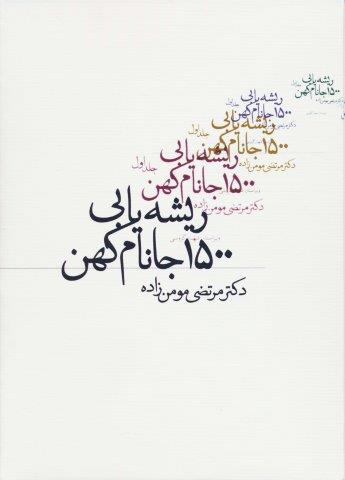 ریشه‌یابی
۱۵۰۰ جانام کهن
جلد اول
ریشه‌یابی
۱۵۰۰ جانام کهن
جلد اول
دکتر مرتضی مومن زاده
ریشه‌یابی
۱۵۰۰ جانام کهن
جلد اول
دکتر مرتضی مومن زاده
ریشه‌یابی
۱۵۰۰ جانام کهن
جلد اول
دکتر مرتضی مومن زاده
ریشه‌یابی
۱۵۰۰ جانام کهن
دکتر مرتضی مومن زاده